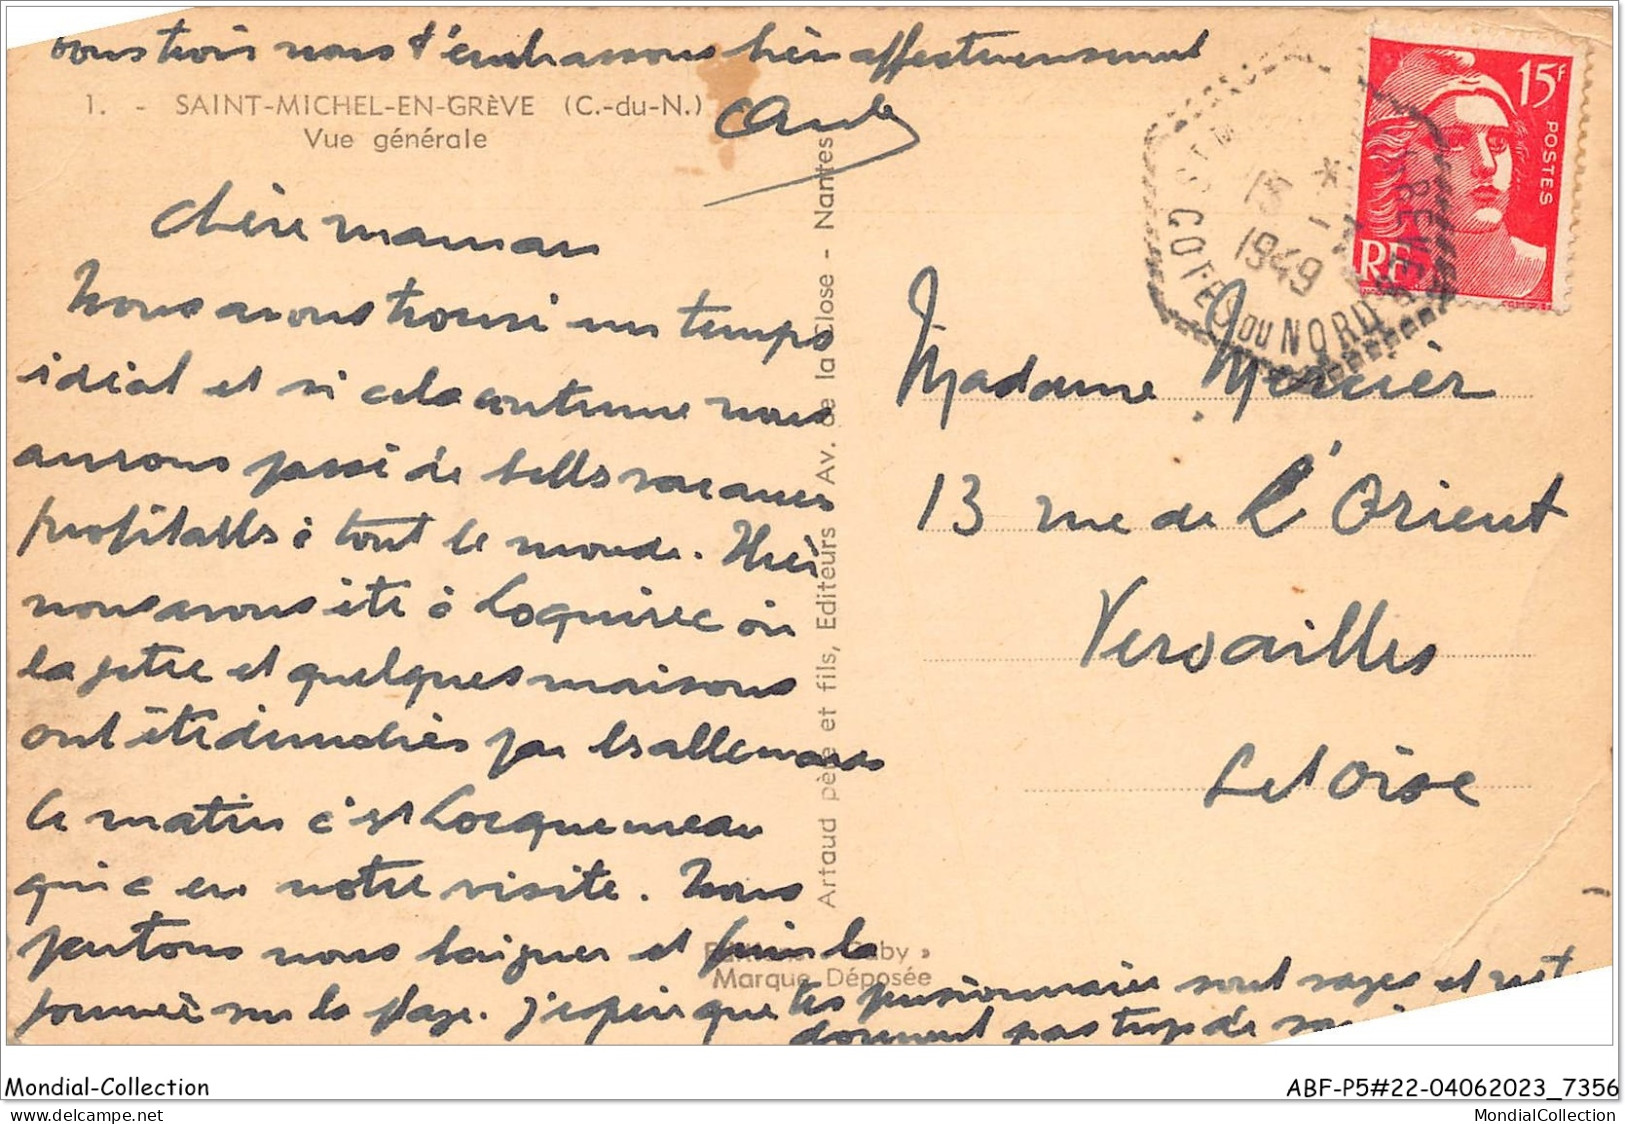 tous trois nous t'embrassons bien affectueusement
1. - SAINT-MICHEL-EN-GRÈVE (C.-du-N.)
Vue générale
Chère maman
Nous avons trouvé un temps
idéal et si cela continue nous
aurons passé de belles vacances
profitables à tout le monde. Hier
nous avons été à Locquirec où
la jetée et quelques maisons
ont été démolies par les allemands
Ce matin c'est Locquemeau
qui a eu notre visite. Nous
partons nous baigner et finir la
journée sur la plage. J'espère que tes pensionnaires sont sages et
donnent pas trop de
Artaud père et fils, Editeurs Av. de la Close - Nantes
Marque Déposée
15F
POSTES
RF
15
1949
COTES DU NORD
Madame Mercier
13 rue de l'Orient
Versailles
S et Oise
Mondial-Collection
ABF-P5#22-04062023_7356
MondialCollection
MondialCollection